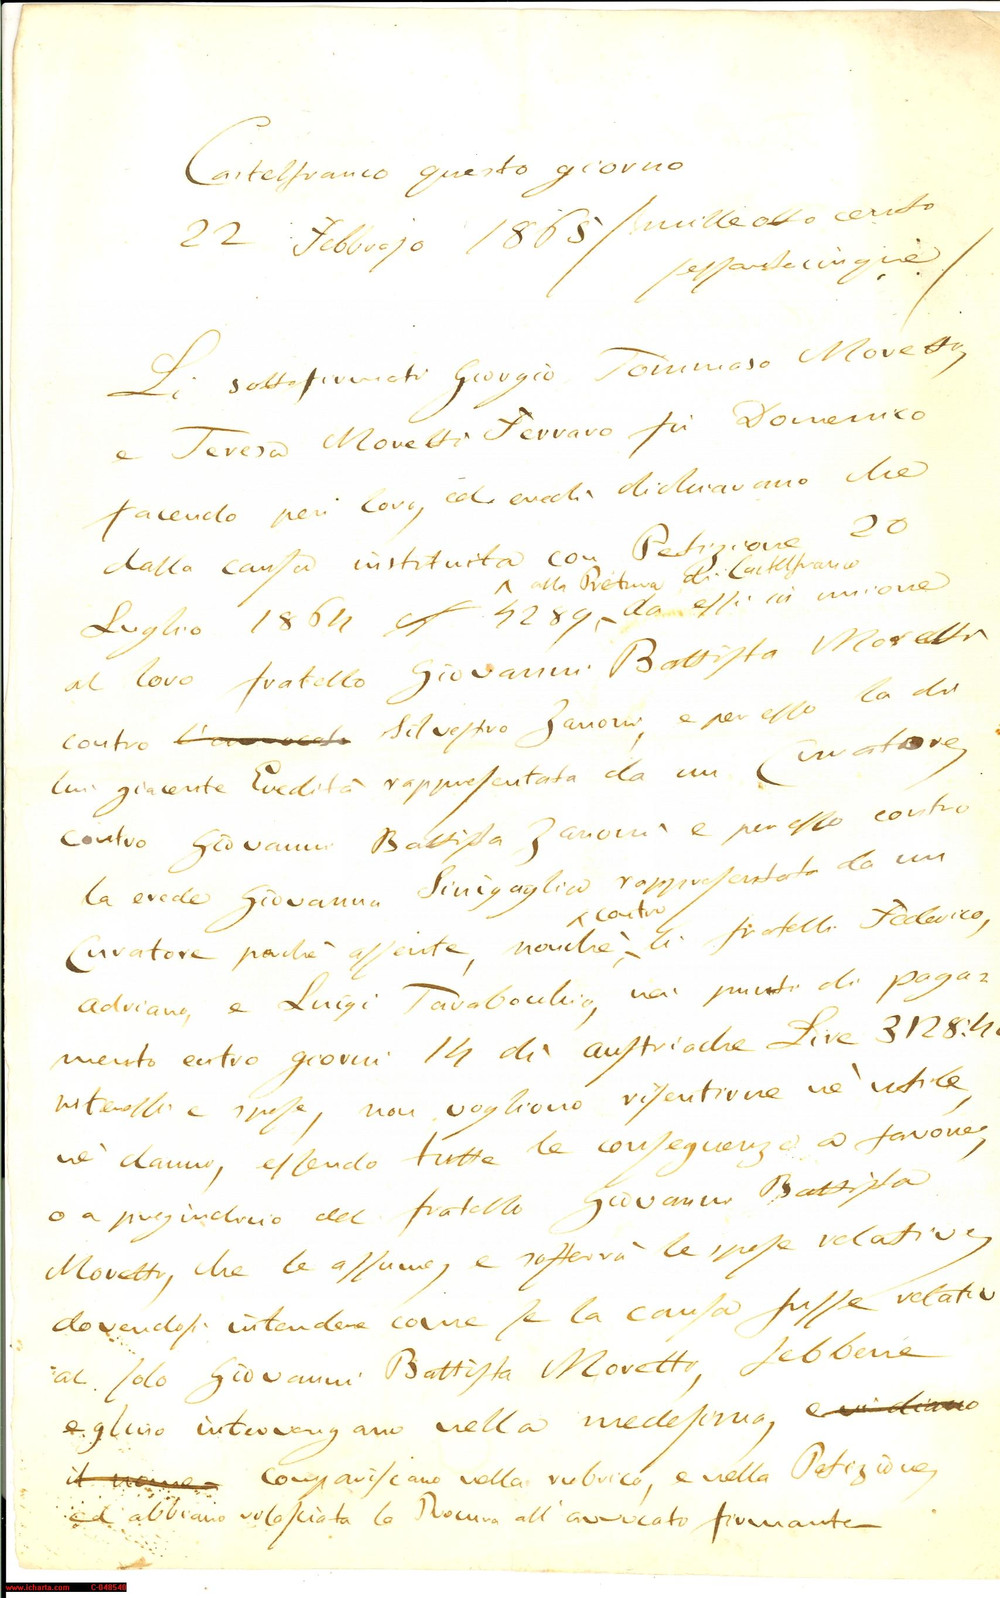 Castelfranco questo giorno
22 Febbrajo 1865 / mille otto cento
sessantacinque /
Li sottofirmati Giorgio Tommaso Moretti,
e Teresa Moretti Ferraro fu Domenico
facendo per loro, ed eredi dichiarano che
dalla causa instituita con Petizione 20
^ alla Pretura di Castelfranco
Luglio 1864 N 4289 ^ da essi in unione
al loro fratello Giovanni Battista Moretti
contro l'avvocato Silvestro Zanoni, e per esso la di
lui giacente Eredità rappresentata da un Curatore,
contro Giovanni Battista Zanoni e per esso contro
la erede Giovanna Sinigaglia rappresentata da un
^ contro
Curatore perchè assente, nonchè ^ li fratelli Federico,
Adriano, e Luigi Tarabochia, nei punti di paga=
mento entro giorni 14 di austriache Lire 3128:4
interessi e spese, non vogliono risentirne nè utile,
nè danno, essendo tutte le conseguenze a favore,
o a pregiudicio del fratello Giovanni Battista
Moretti, che le assume, e soffrirà le spese relative,
dovendosi intendere come se la causa fusse relativa
al solo Giovanni Battista Moretti, sebbene
eglino intervengano nella medesima, e vi diano
il nome compariscano nella rubrica, e nella Petizione,
ed abbiano rilasciata la Procura all'avvocato firmante
www.icharta.com C-048548